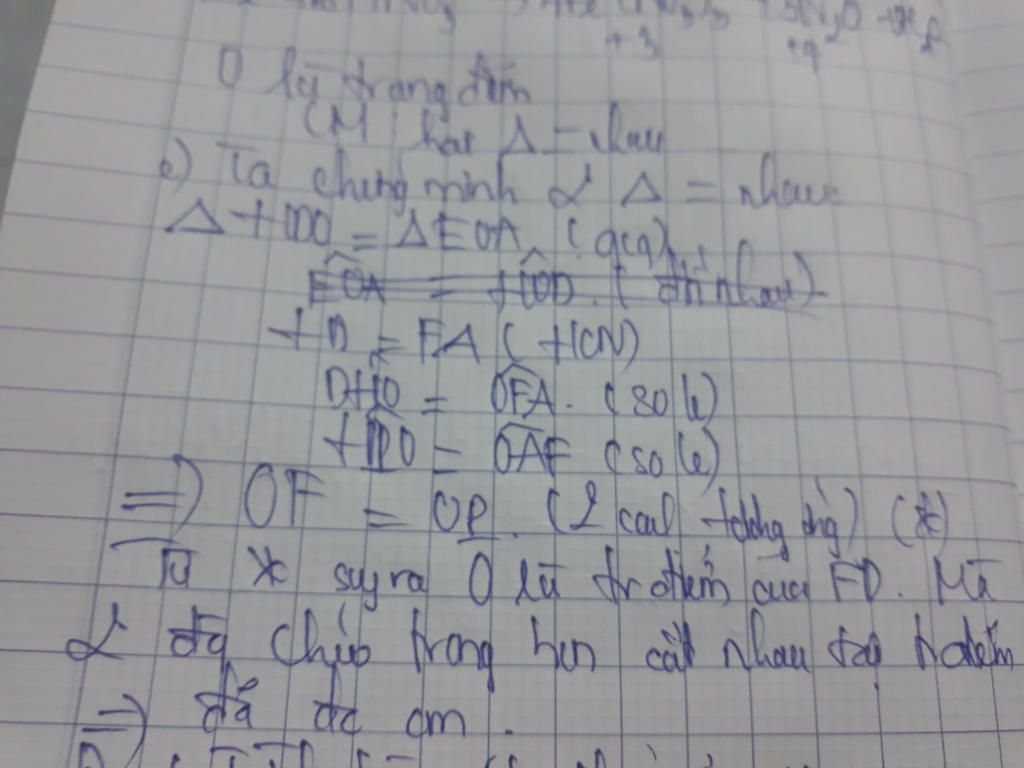 O là trung điểm
CM hai Δ = nhau
c) Ta chứng minh 2 Δ = nhau
ΔHDO = ΔEOA (gcg)
EOA = HOD ( đ nhau)
HD = EA ( HCN)
DHO = OFA. (so le)
HDO = OAF (so le)
=) OF = OP. (2 cạnh tương ứng) (*)
Từ * suy ra O là tr điểm của FD. Mà
2 đg chéo trong hcn cắt nhau tại tr điểm
=) đã đc cm.